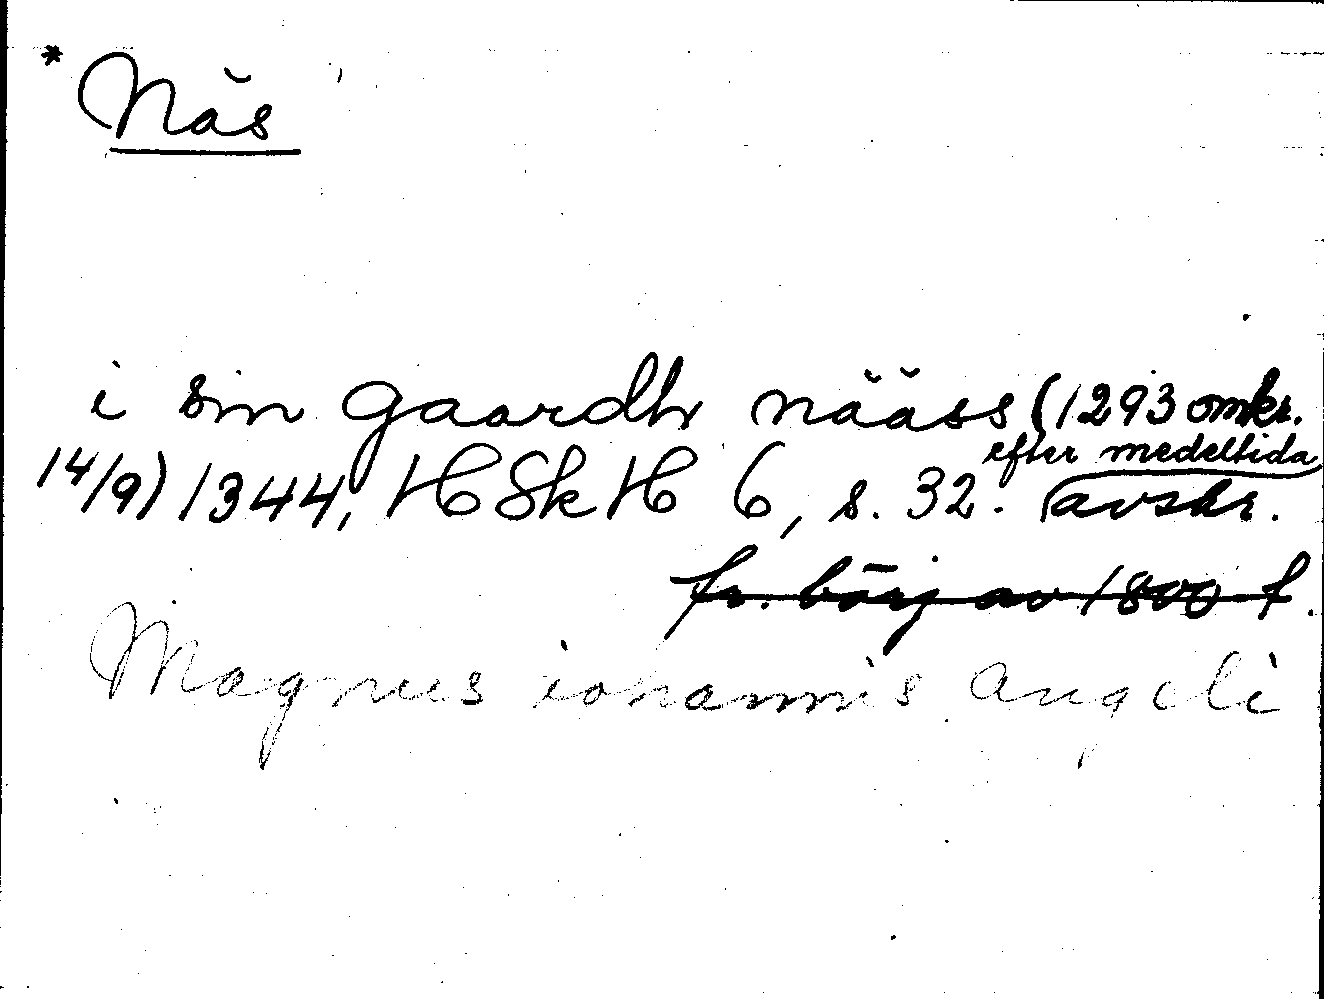 * Näs
i sin gaardh nääss (1293 omkr.
14/9) 1344, HSkH 6, s. 32. efter medeltida avskr.
fr. börj av 1800-t.
Magnus iohannis angeli